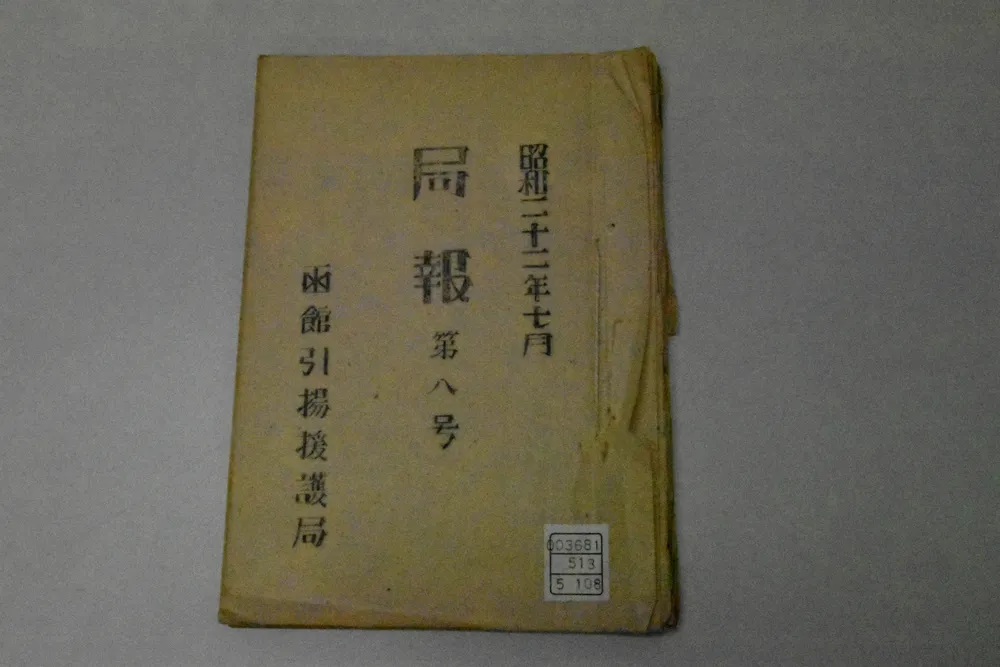 昭和二十二年七月
局報 第八号
函館引揚援護局
003681
513
5 108